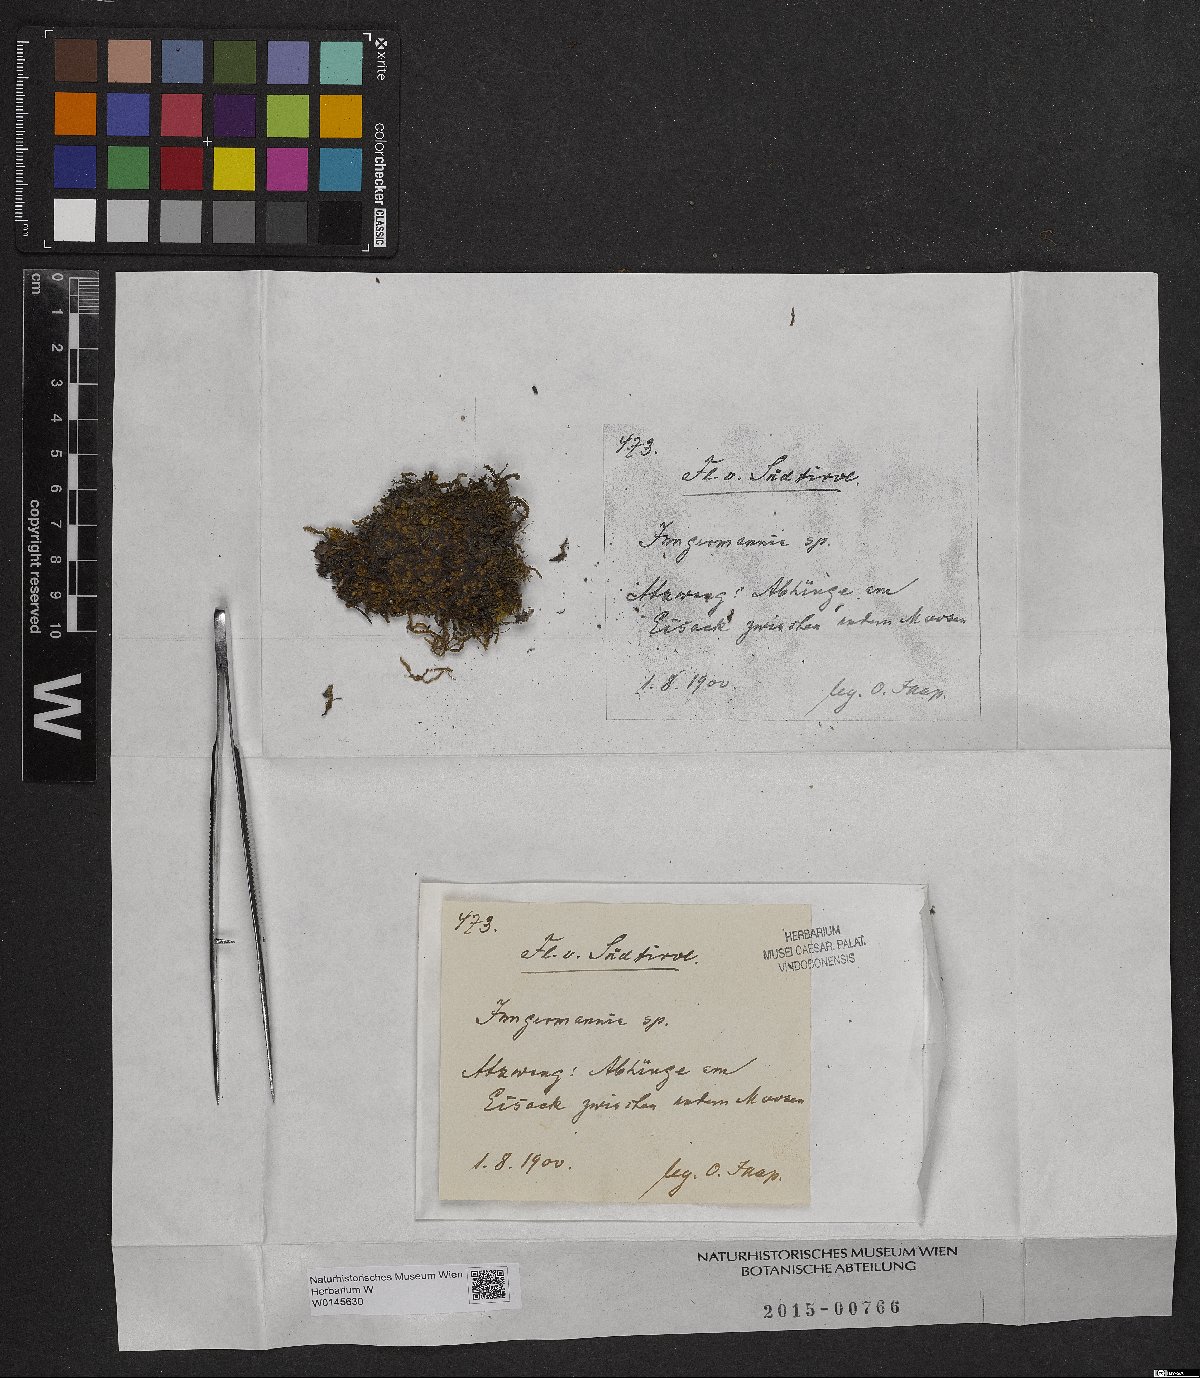 xrite
colorchecker CLASSIC
cm
0 1 2 3 4 5 6 7 8 9 10
copyright reserved
W
473.
Fl. v. Südtirol.
Jungermannia sp.
Atzwang: Abhänge am
Eisack zwischen andern Moosen
1. 8. 1900.
leg. O. Jaap.
473.
Fl. v. Südtirol.
HERBARIUM
MUSEI CAESAR. PALAT.
VINDOBONENSIS
Jungermannia sp.
Atzwang: Abhänge am
Eisack zwischen andern Moosen
1. 8. 1900.
leg. O. Jaap.
NATURHISTORISCHES MUSEUM WIEN
BOTANISCHE ABTEILUNG
2015-00766
Naturhistorisches Museum Wien
Herbarium W
W0145630